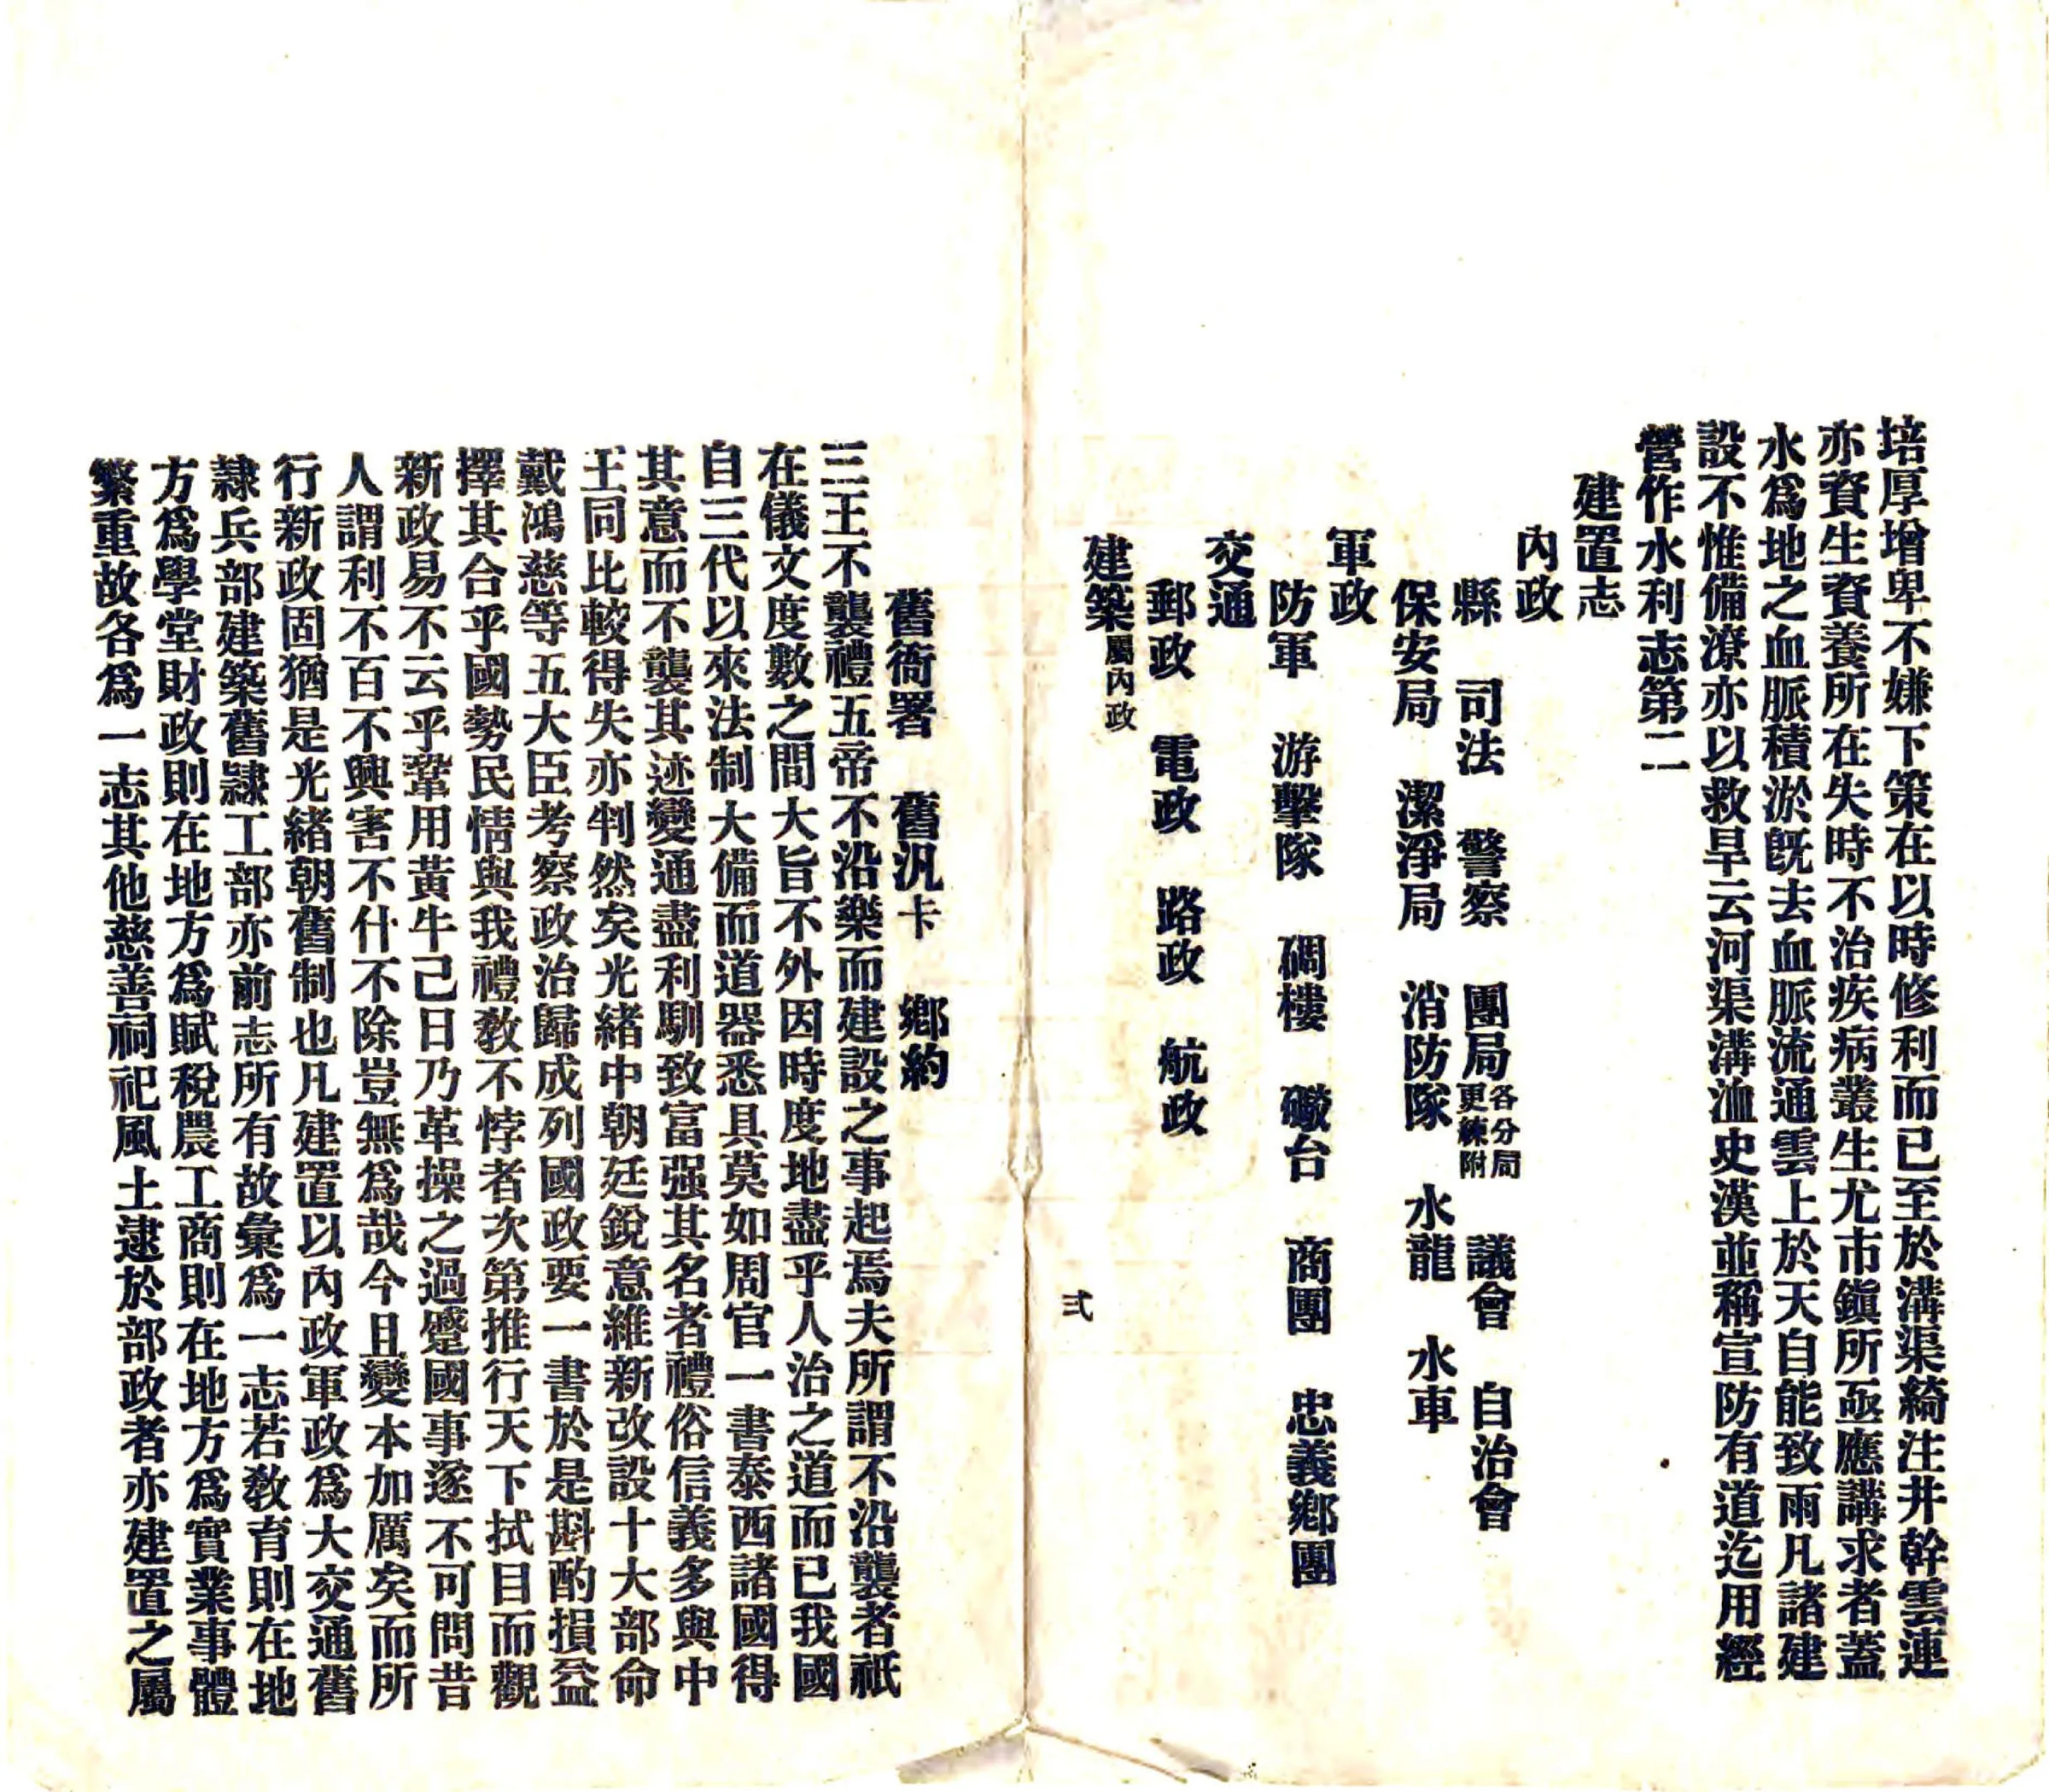 培厚增卑不嫌下策在以時修利而已至於溝渠綺注井幹雲連
亦資生資養所在失時不治疾病叢生尤市鎭所亟應講求者蓋
水爲地之血脈積淤旣去血脈流通雲上於天自能致雨凡諸建
設不惟備潦亦以救旱云河渠溝洫史漢並稱宣防有道迄用經
營作水利志第二
建置志
內政
縣　司法　警察　團局各分局更練附　議會　自治會
保安局　潔淨局　消防隊　水龍　水車
軍政
防軍　游擊隊　碉樓　礮台　商團　忠義鄉團
交通
郵政　電政　路政　航政
建築屬內政
弍
舊衙署　舊汛卡　鄉約
三王不襲禮五帝不沿樂而建設之事起焉夫所謂不沿襲者祇
在儀文度數之間大旨不外因時度地盡乎人治之道而已我國
自三代以來法制大備而道器悉具莫如周官一書泰西諸國得
其意而不襲其迹變通盡利馴致富强其名者禮俗信義多與中
王同比較得失亦判然矣光緒中朝廷銳意維新改設十大部命
戴鴻慈等五大臣考察政治歸成列國政要一書於是斟酌損益
擇其合乎國勢民情與我禮敎不悖者次第推行天下拭目而觀
新政易不云乎鞏用黃牛己日乃革操之過蹙國事遂不可問昔
人謂利不百不興害不什不除豈無爲哉今且變本加厲矣而所
行新政固猶是光緒朝舊制也凡建置以內政軍政爲大交通舊
隸兵部建築舊隸工部亦前志所有故彙爲一志若敎育則在地
方爲學堂財政則在地方爲賦稅農工商則在地方爲實業事體
繁重故各爲一志其他慈善祠祀風土逮於部政者亦建置之屬